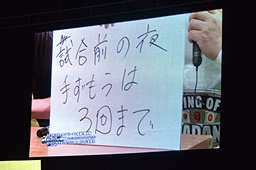 試合前の夜
手すもうは
3回まで
ING OF